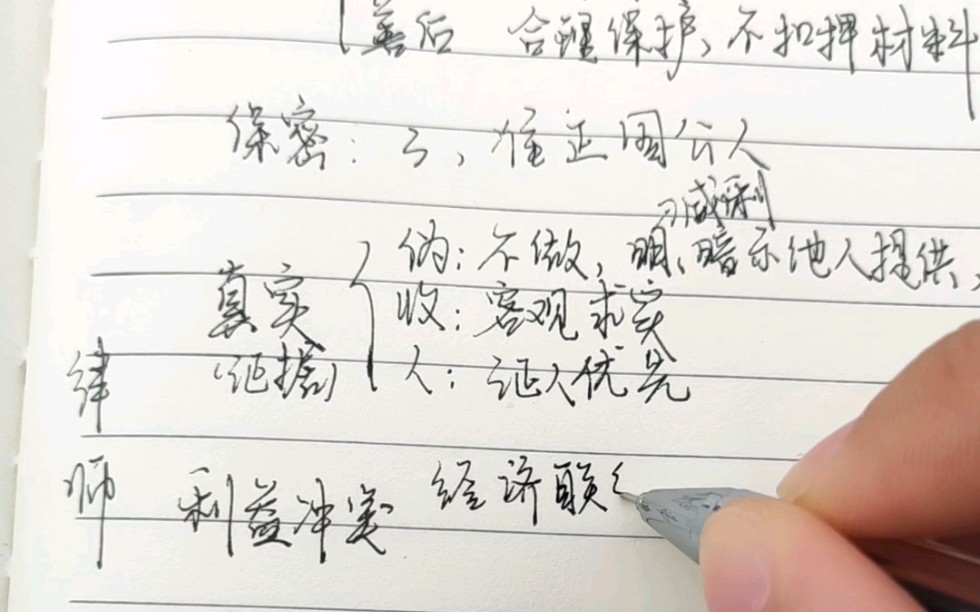 善后 合理保护、不扣押材料
保密：3，准正国公人
威利
伪：不做，明、暗示他人提供，
真实 收：客观求实
(证据) 人：证人优先
律
师 利益冲突 经济联